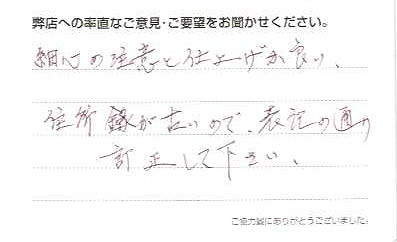 弊店への率直なご意見・ご要望をお聞かせください。
細心の注意と仕上げが良い、
住所録が古いので、表記の通り
訂正して下さい、
ご協力誠にありがとうございました。